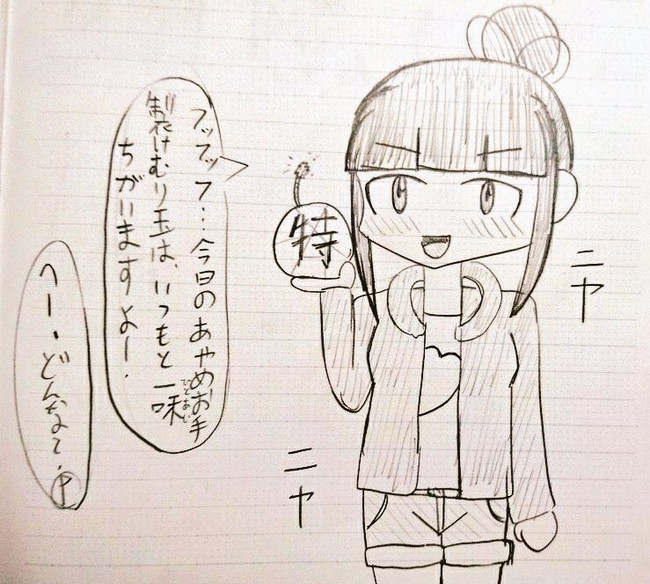 特
フッフッフ…今日のあやめお手
製けむり玉は、いつもと一味
ひとあじ
ちがいますよー.
へー、どんな
ニヤ
ニヤ